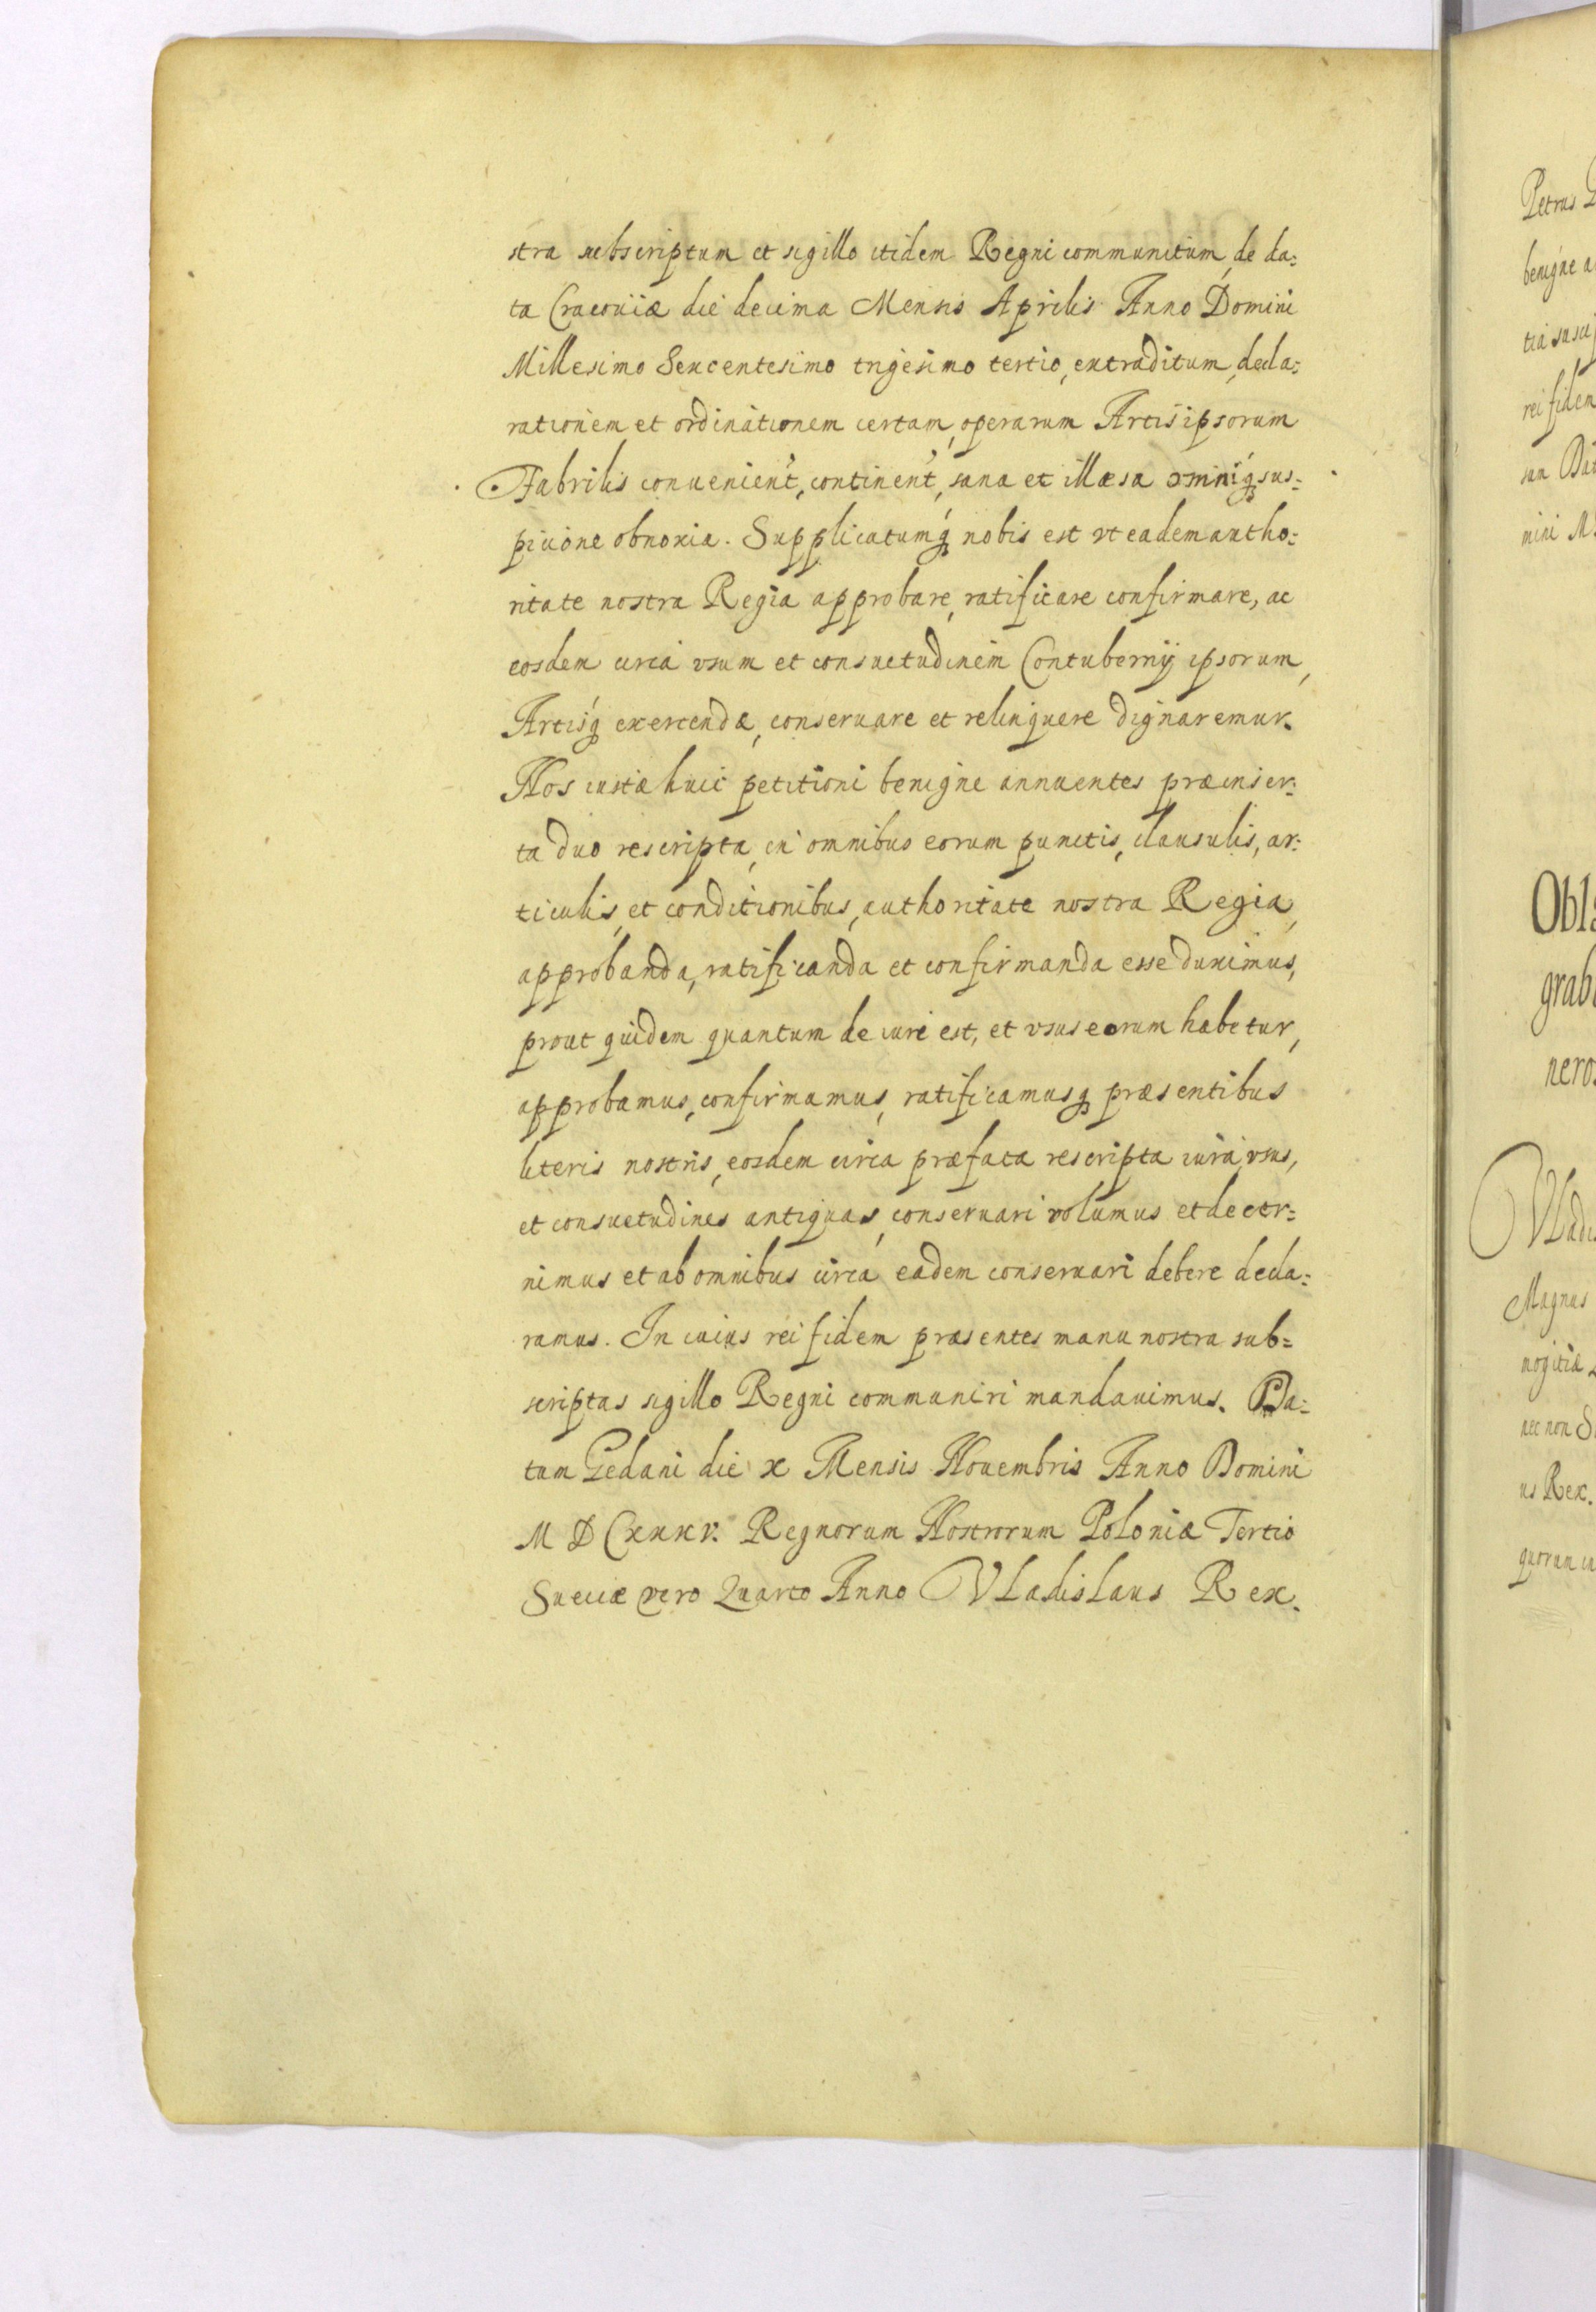 stra subscriptum et sigillo itidem Regni communitum, de da=
ta Cracouiæ die decima Mensis Aprilis Anno Domini
Millesimo Sexcentesimo trigesimo tertio, extraditum, decla=
rationem et ordinationem certam, operarum Artis ipsorum
Fabrilis conuenient, continent, sana et illæsa ominiq sus=
picione obnoxia. Supplicatumq nobis est vt eadem autho=
ritate nostra Regia approbare, ratificare confirmare, ac
eosdem circa vsum et consuetudinem Contubernij ipsorum,
Artisq exercendæ, conseruare et relinquere dignaremur.
Nos iustæ huic petitioni benigne annuentes præinser=
ta duo rescripta, in omnibus eorum punctis, clausulis, ar=
ticulis, et conditionibus, authoritate nostra Regia,
approbanda, ratificanda et confirmanda esse duximus,
prout quidem quantum de iure est, et vsus eorum habetur,
approbamus, confirmamus, ratificamusq præsentibus
literis nostris, eosdem circa præfata rescripta iura, vsus,
et consuetudines antiquas, conseruari volumus et decer=
nimus et ab omnibus circa eadem conseruari debere decla=
ramus. In cuius rei fidem præsentes manu nostra sub=
scriptas sigillo Regni communiri mandauimus. Da=
tum Gedani die x Mensis Nouembris Anno Domini
M D Cxxxv. Regnorum Nostrorum Poloniæ Tertio
Sueciæ vero Quarto Anno Vladislaus Rex.
Petrus
benigne a
rei fidem
mini M.
Magnus
nogitiæ
nec non S
us Rex.
quorum